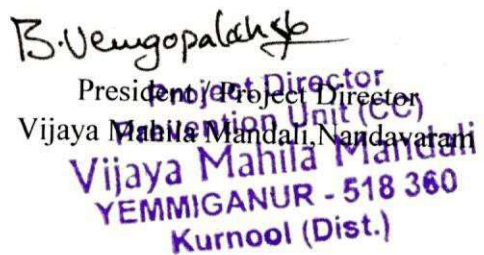 B.Venugopalakrish
President / Project Director
Vijaya Mahila Mandali,Nandavaram
Project Director
Prevention Unit (CC)
Vijaya Mahila Mandali
YEMMIGANUR - 518 360
Kurnool (Dist.)